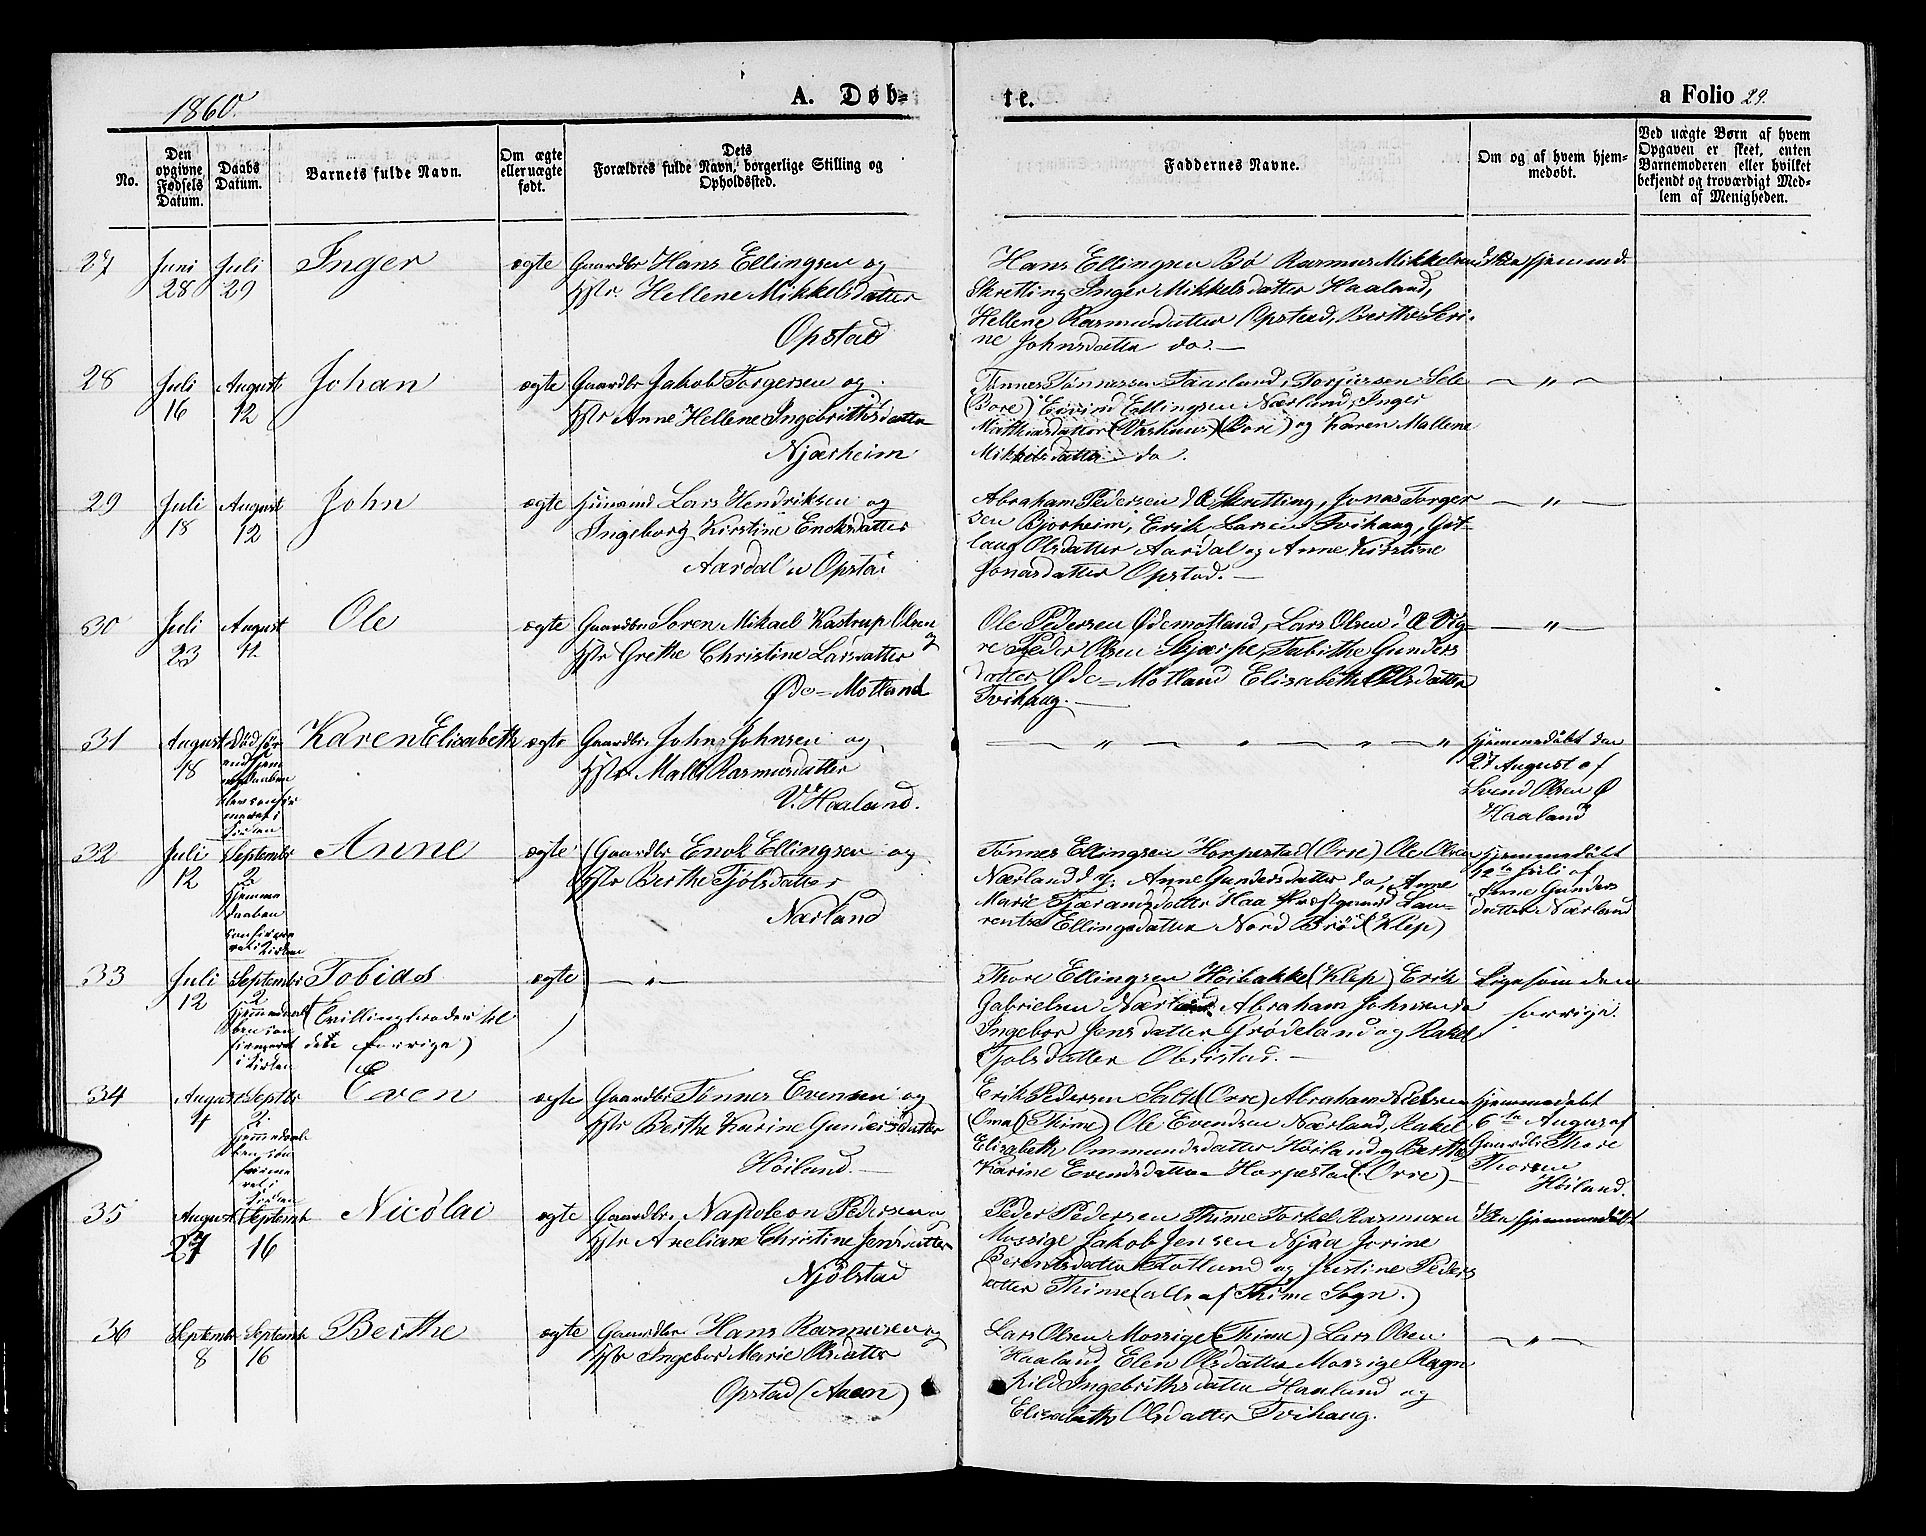 1860.
A. Døb-
te.
a Folio 29.
No.
Den
opgivne
Fødsels
Datum.
Daabs
Datum.
Barnets fulde Navn.
Om ægte
eller uægte
født.
Dets
Forældres fulde Navn, borgerlige Stilling og
Opholdssted.
Faddernes Navne.
Om og af hvem hjem-
medøbt.
Ved uægte Børn af hvem
Opgaven er skeet, enten
Barnemoderen eller hvilket
bekjendt og troværdigt Med-
lem af Menigheden.
27
Juni
28
Juli
29
Inger
ægte
Gaardbr Hans Ellingsen og
Hstr. Hellene Mikkelsdatter
Opstad
Hans Ellingsen Bø Rasmus Mikkelsen
Skretting Inger Mikkelsdatter Haaland,
Hellene Rasmusdatter Opstad, Berthe Seri-
ne Johnsdatter do. —
28
Juli
16
August
12
Johan
ægte
Gaardbr Jakob Torgersen og
Hstr Anne Hellene Ingebrittsdatter
Njærheim
Tønnes Tønnessen Taarland, Torjersen Sele
(Bore) Eivind Ellingsen Nærland, Inger
Mathiasdatter (Bore) og Karen Mallene
Mikkelsdatter do.
— " —
29
Juli
18
August
12
John
ægte
Lars Hendriksen og
Ingeborg Kirstine Enoksdatter
Aardal u Opstad
Abraham Pedersen Skretting, Jonas Torger
sen Bjorheim, Erik Larsen Tvihaug, Gut-
laug Olsdatter Aardal og Anne Kirstine
Jonasdatter Opstad. —
— " —
30
Juli
23
August
Ole
ægte
Gaardbr Soren Mikael Kastrup Olsen
og
Hstr Grethe Christine Larsdatter
Øde=Motland
Ole Pedersen Ødemotland, Lars Olsen Vig-
re Peder Olsen Skjærpe, Tabithe Gunders
datter Øde=Motland Elisabeth Olsdatter
Tvihaug. —
— " —
31
August
18
Karen Elisabeth
ægte
Gaardbr John Johnsen og
Hstr Malli Rasmusdatter
V. Haaland.
— " — " — " — "
Hjemmedøbt den
27 August af
Svend Olsen Ø
Haaland
32
Juli
12
Septembr
2
Hjemme
daaben
confirme
ret i Kirken
Anne
ægte
Gaardbr Enok Ellingsen og
Hstr Berthe Tjølsdatter
Nærland
Tønnes Ellingsen Horpestad (Orre) Ole Olsen
Nærland d. y. Anne Gundersdatter do, Anne
Marie Tjærandsdatter Haa Præstgaard Lau-
rentse Ellingsdatter Nord Brøi (Klep)
Hjemmedøbt
12te Juli af
Anne Gunders
datter Nærland
33
Juli
12
Septembr
2
Hjemmedaa
ben con
firmeret
i Kirken
Tobias
(Tvillingbroder til
dette forrige)
ægte
— " —
Thore Ellingsen Høibakke (Klep) Erik
Gabrielsen Nærland Abraham Johnsen do
Ingebor Jensdatter Grødeland og Rakel
Tjølsdatter Obristad. —
Ligesom den
forrige.
34
August
4
Septbr
2
Hjemmedaa
ben con
firme
ret i
Kirken
Even
ægte
Gaardbr Tønnes Evensen og
Hstr Berthe Karine Gundersdatter
Høiland. —
Erik Pedersen Salte (Orre) Abraham Nielsen
Oma (Thime) Ole Evendsen Nærland, Rakel
Elisabeth Ommundsdatter Høiland og Berthe
Karine Evendsdatter Horpestad (Orre) —
Hjemmedøbt
6te August af
Gaardbr Thore
Thorsen
Høiland.
35
August
27
Septemb
16
Nicolai
ægte
Gaardbr. Napoleon Pedersen og
Hstr Aneliane Christine Jensdatter
Njølstad
Peder Pedersen Thime Torkel Rasmusen
Mossige Jakob Jensen Njaa Jorine
Berentsdatter Fotland og Justine Peders
datter Thime (alle af Thime Sogn.)
Ikke hjemmedøbt
36
Septembr
8
Septemb
16
Berthe
ægte
Gaardbr. Hans Rasmusen og
Hstr Ingebor Marie Olsdatter
Opstad (Aaen)
Lars Olsen Mossige (Thime) Lars Olsen
Haaland, Elen Olsdatter Mossige Ragn
hild Ingebrithsdatter Haaland og
Elisabeth Olsdatter Tvihaug.
— " —